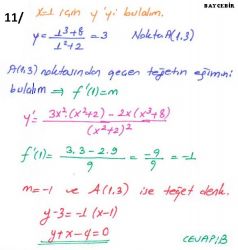 BAYCEBİR
11/ x=1 için y'yi bulalım.
y = (1³+8)/(1²+2) = 3 Nokta A(1,3)
A(1,3) noktasından geçen teğetin eğimini
bulalım ⇒ f'(1)=m
y' = (3x².(x²+2) - 2x(x³+8))/(x²+2)²
f'(1) = (3.3-2.9)/9 = -9/9 = -1
m=-1 ve A(1,3) ise teğet denk.
y-3=-1(x-1)
y+x-4=0
CEVAP:B